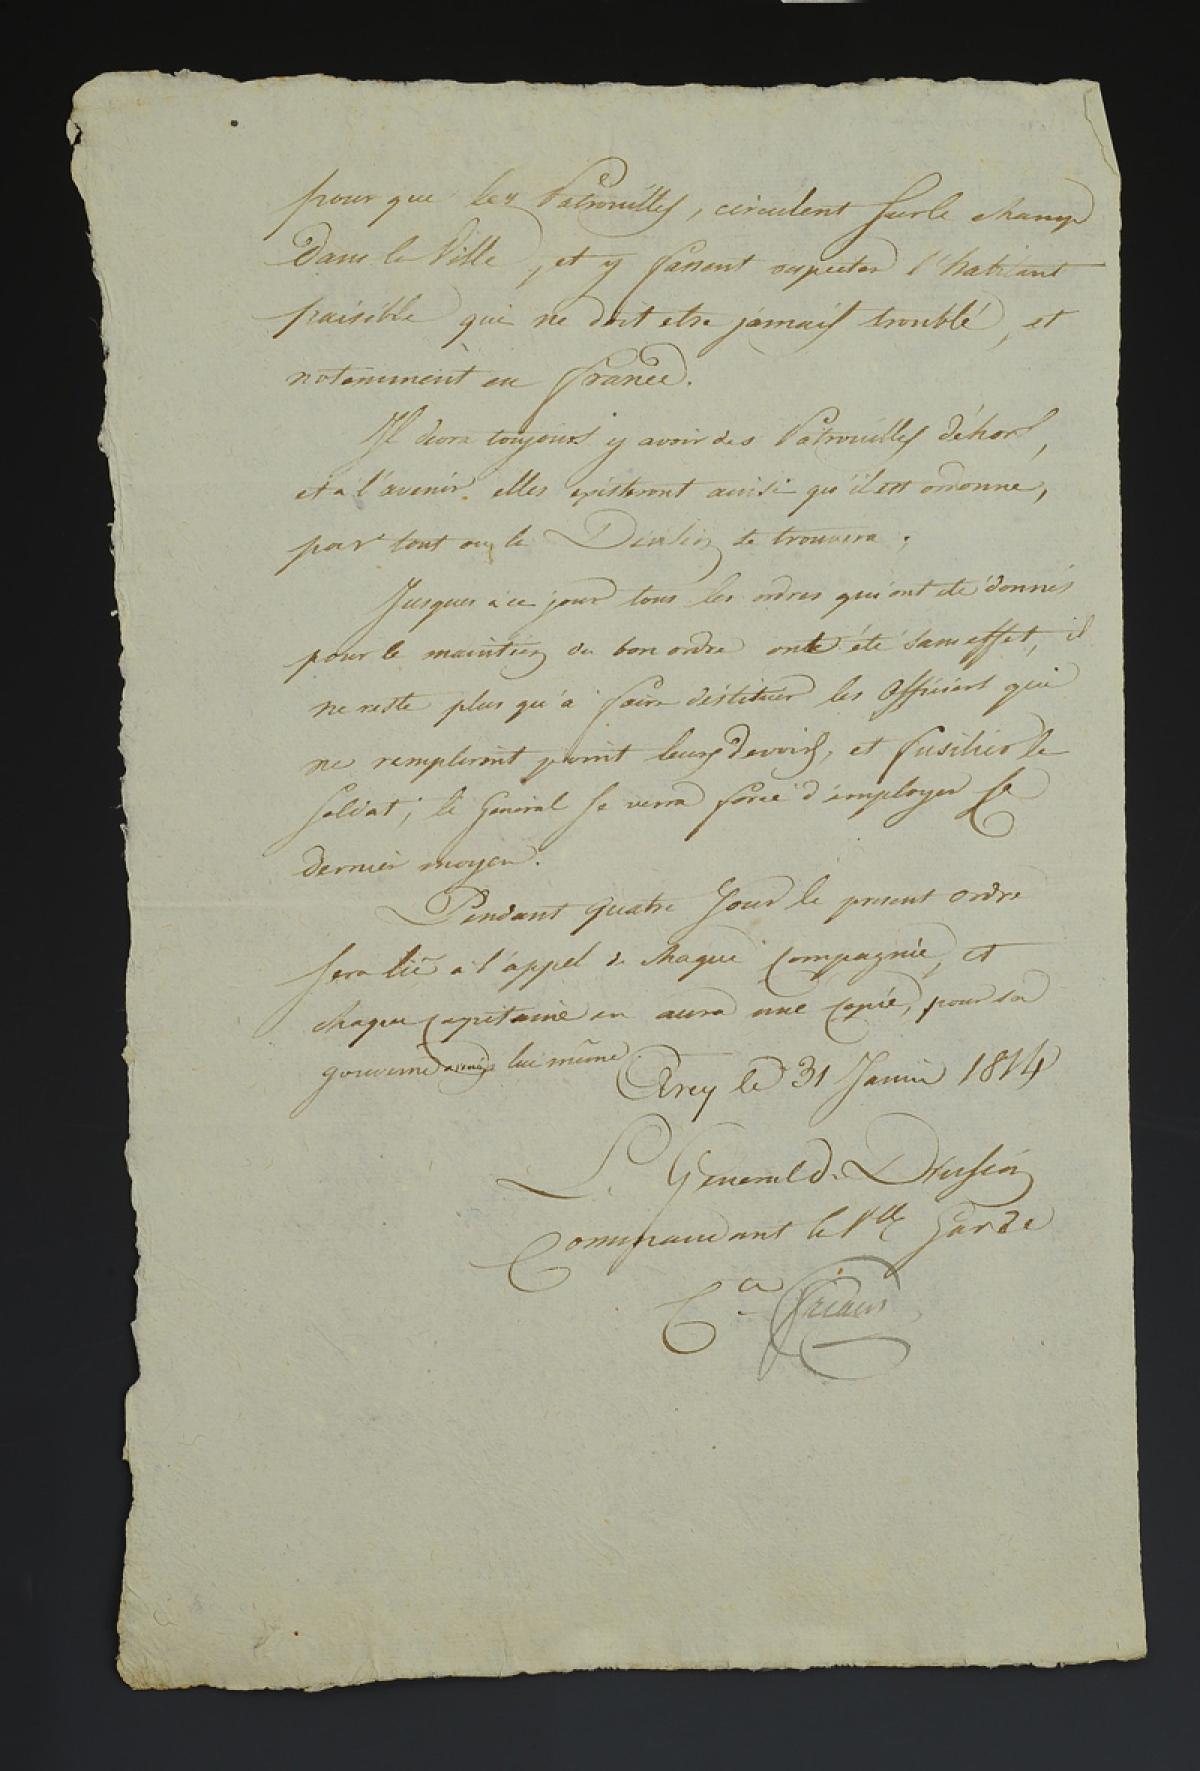 pour que les Patrouilles, circulent sur le champ
Dans la Ville, et y fassent respecter l'habitant
paisible qui ne doit etre jamais troublé, et
notamment en france.
Il devra toujours y avoir des Patrouilles déhors,
et à l'avenir elles existeront ainsi qu'il est ordonne,
par tout ou la Division se trouvera.
Jusques à ce jour tous les ordres qui ont été donnés
pour le maintien du bon ordre ont été sans effet, il
ne reste plus qu'à faire déstituer les Officiers qui
ne rempliront point leurs Devoirs, et fusilier le
Soldat; le Général se verra forcé d'employer ce
dernier moyen.
Pendant quatre Jour le present ordre
sera lû à l'appel de chaque Compagnie, et
chaque Capitaine en aura une Copie, pour sa
gouverne lui même.
le 31 Janvier 1814
Le Général de Division
Commandant la Vlle Garde
Cte Friant